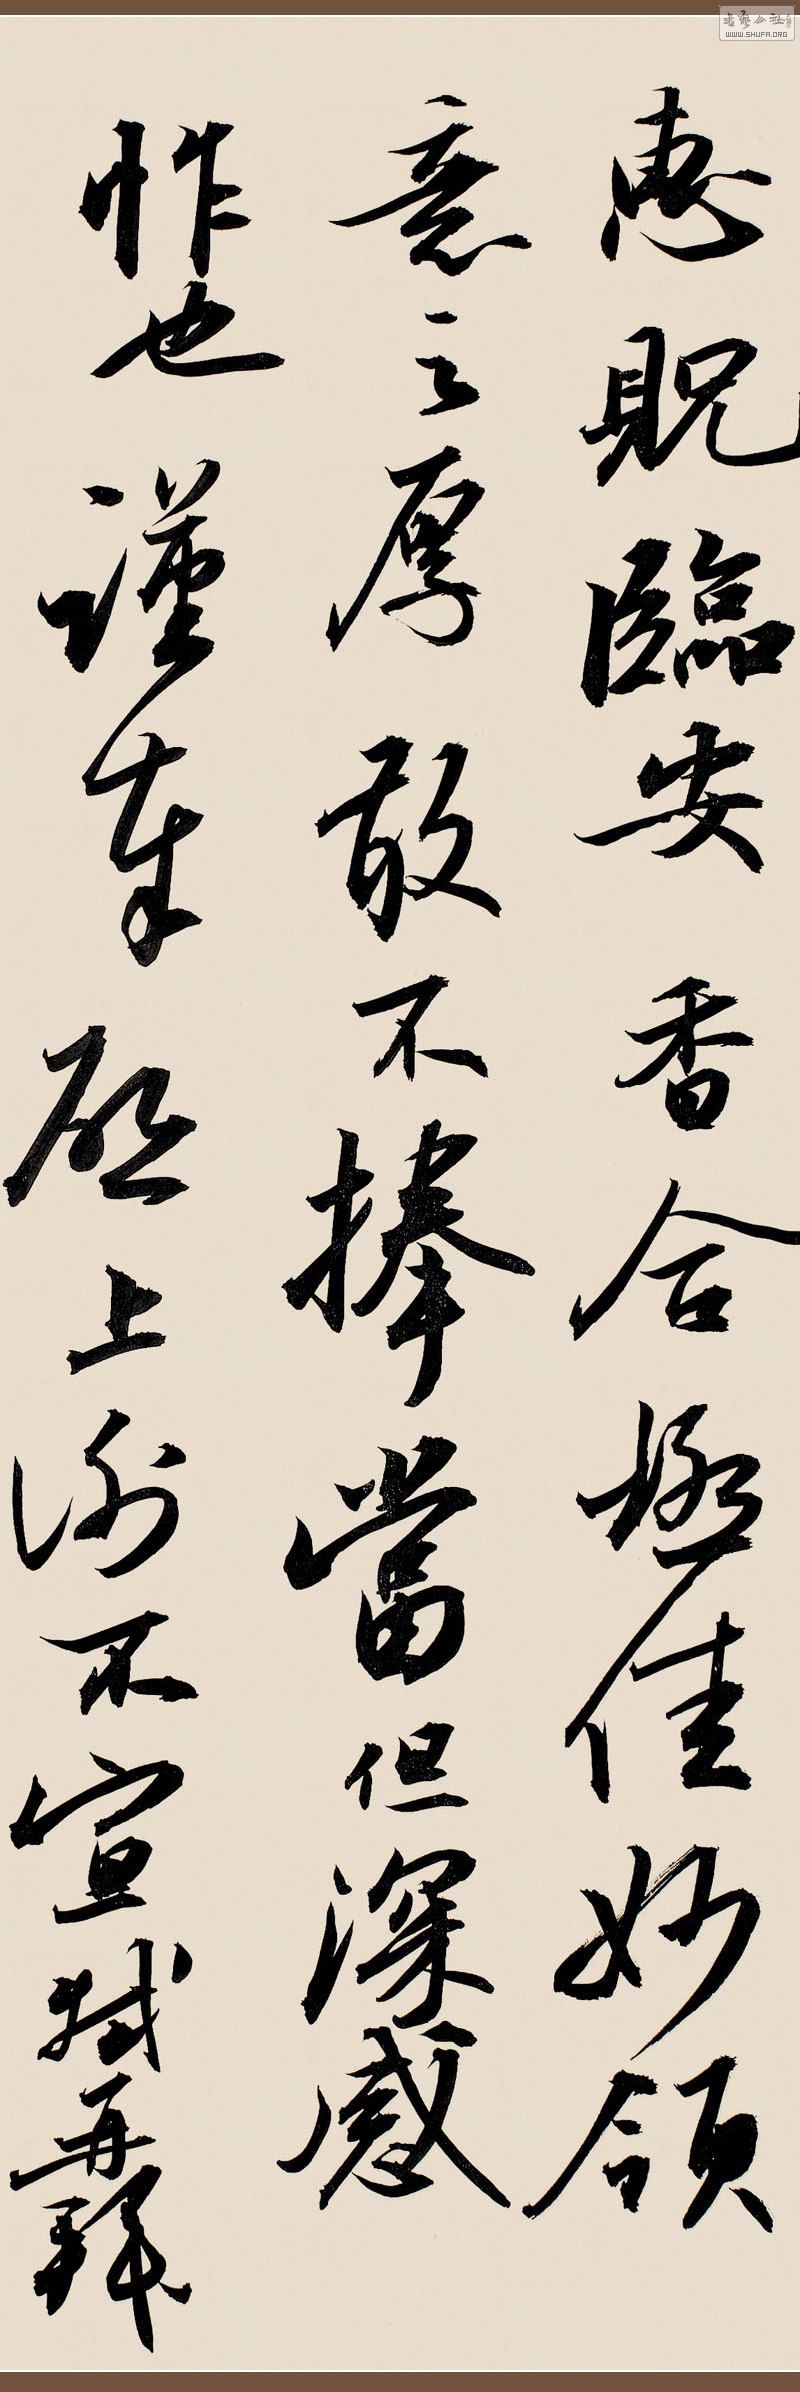 惠貺臨安香合極佳妙領
意之厚敢不捧當但深感
怍也謹奉啟上謝不宣軾再拜
書藝公社
WWW.SHUFA.ORG